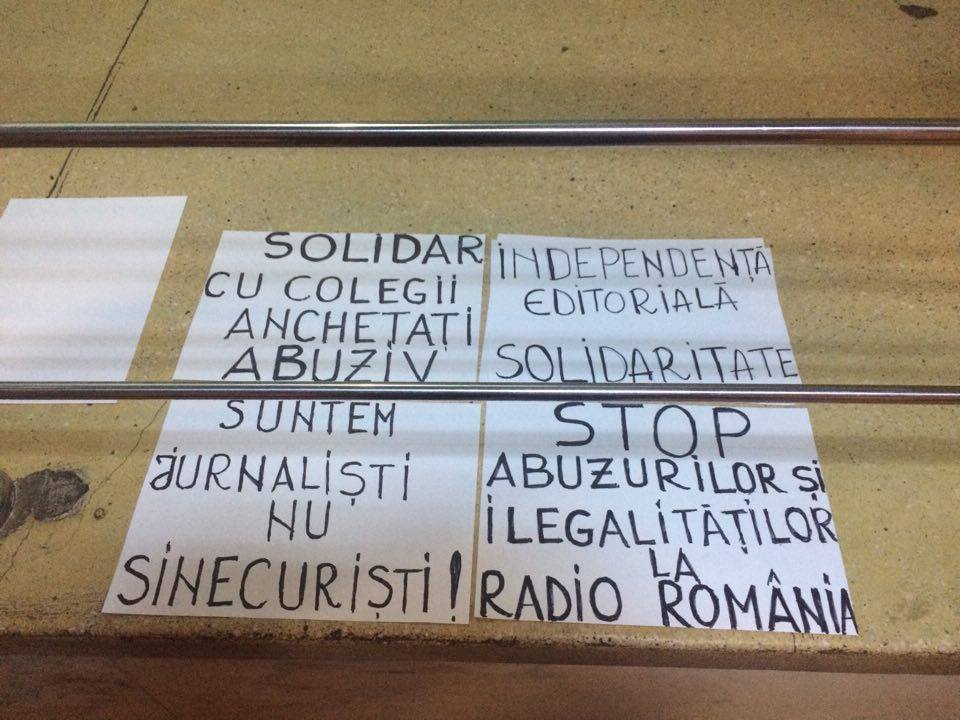 SOLIDAR
CU COLEGII
ANCHETAȚI
ABUZIV
INDEPENDENȚĂ
EDITORIALĂ
SOLIDARITATE
SUNTEM
JURNALIȘTI
NU
SINECURIȘTI!
STOP
ABUZURILOR ȘI
ILEGALITĂȚILOR
LA
RADIO ROMÂNIA